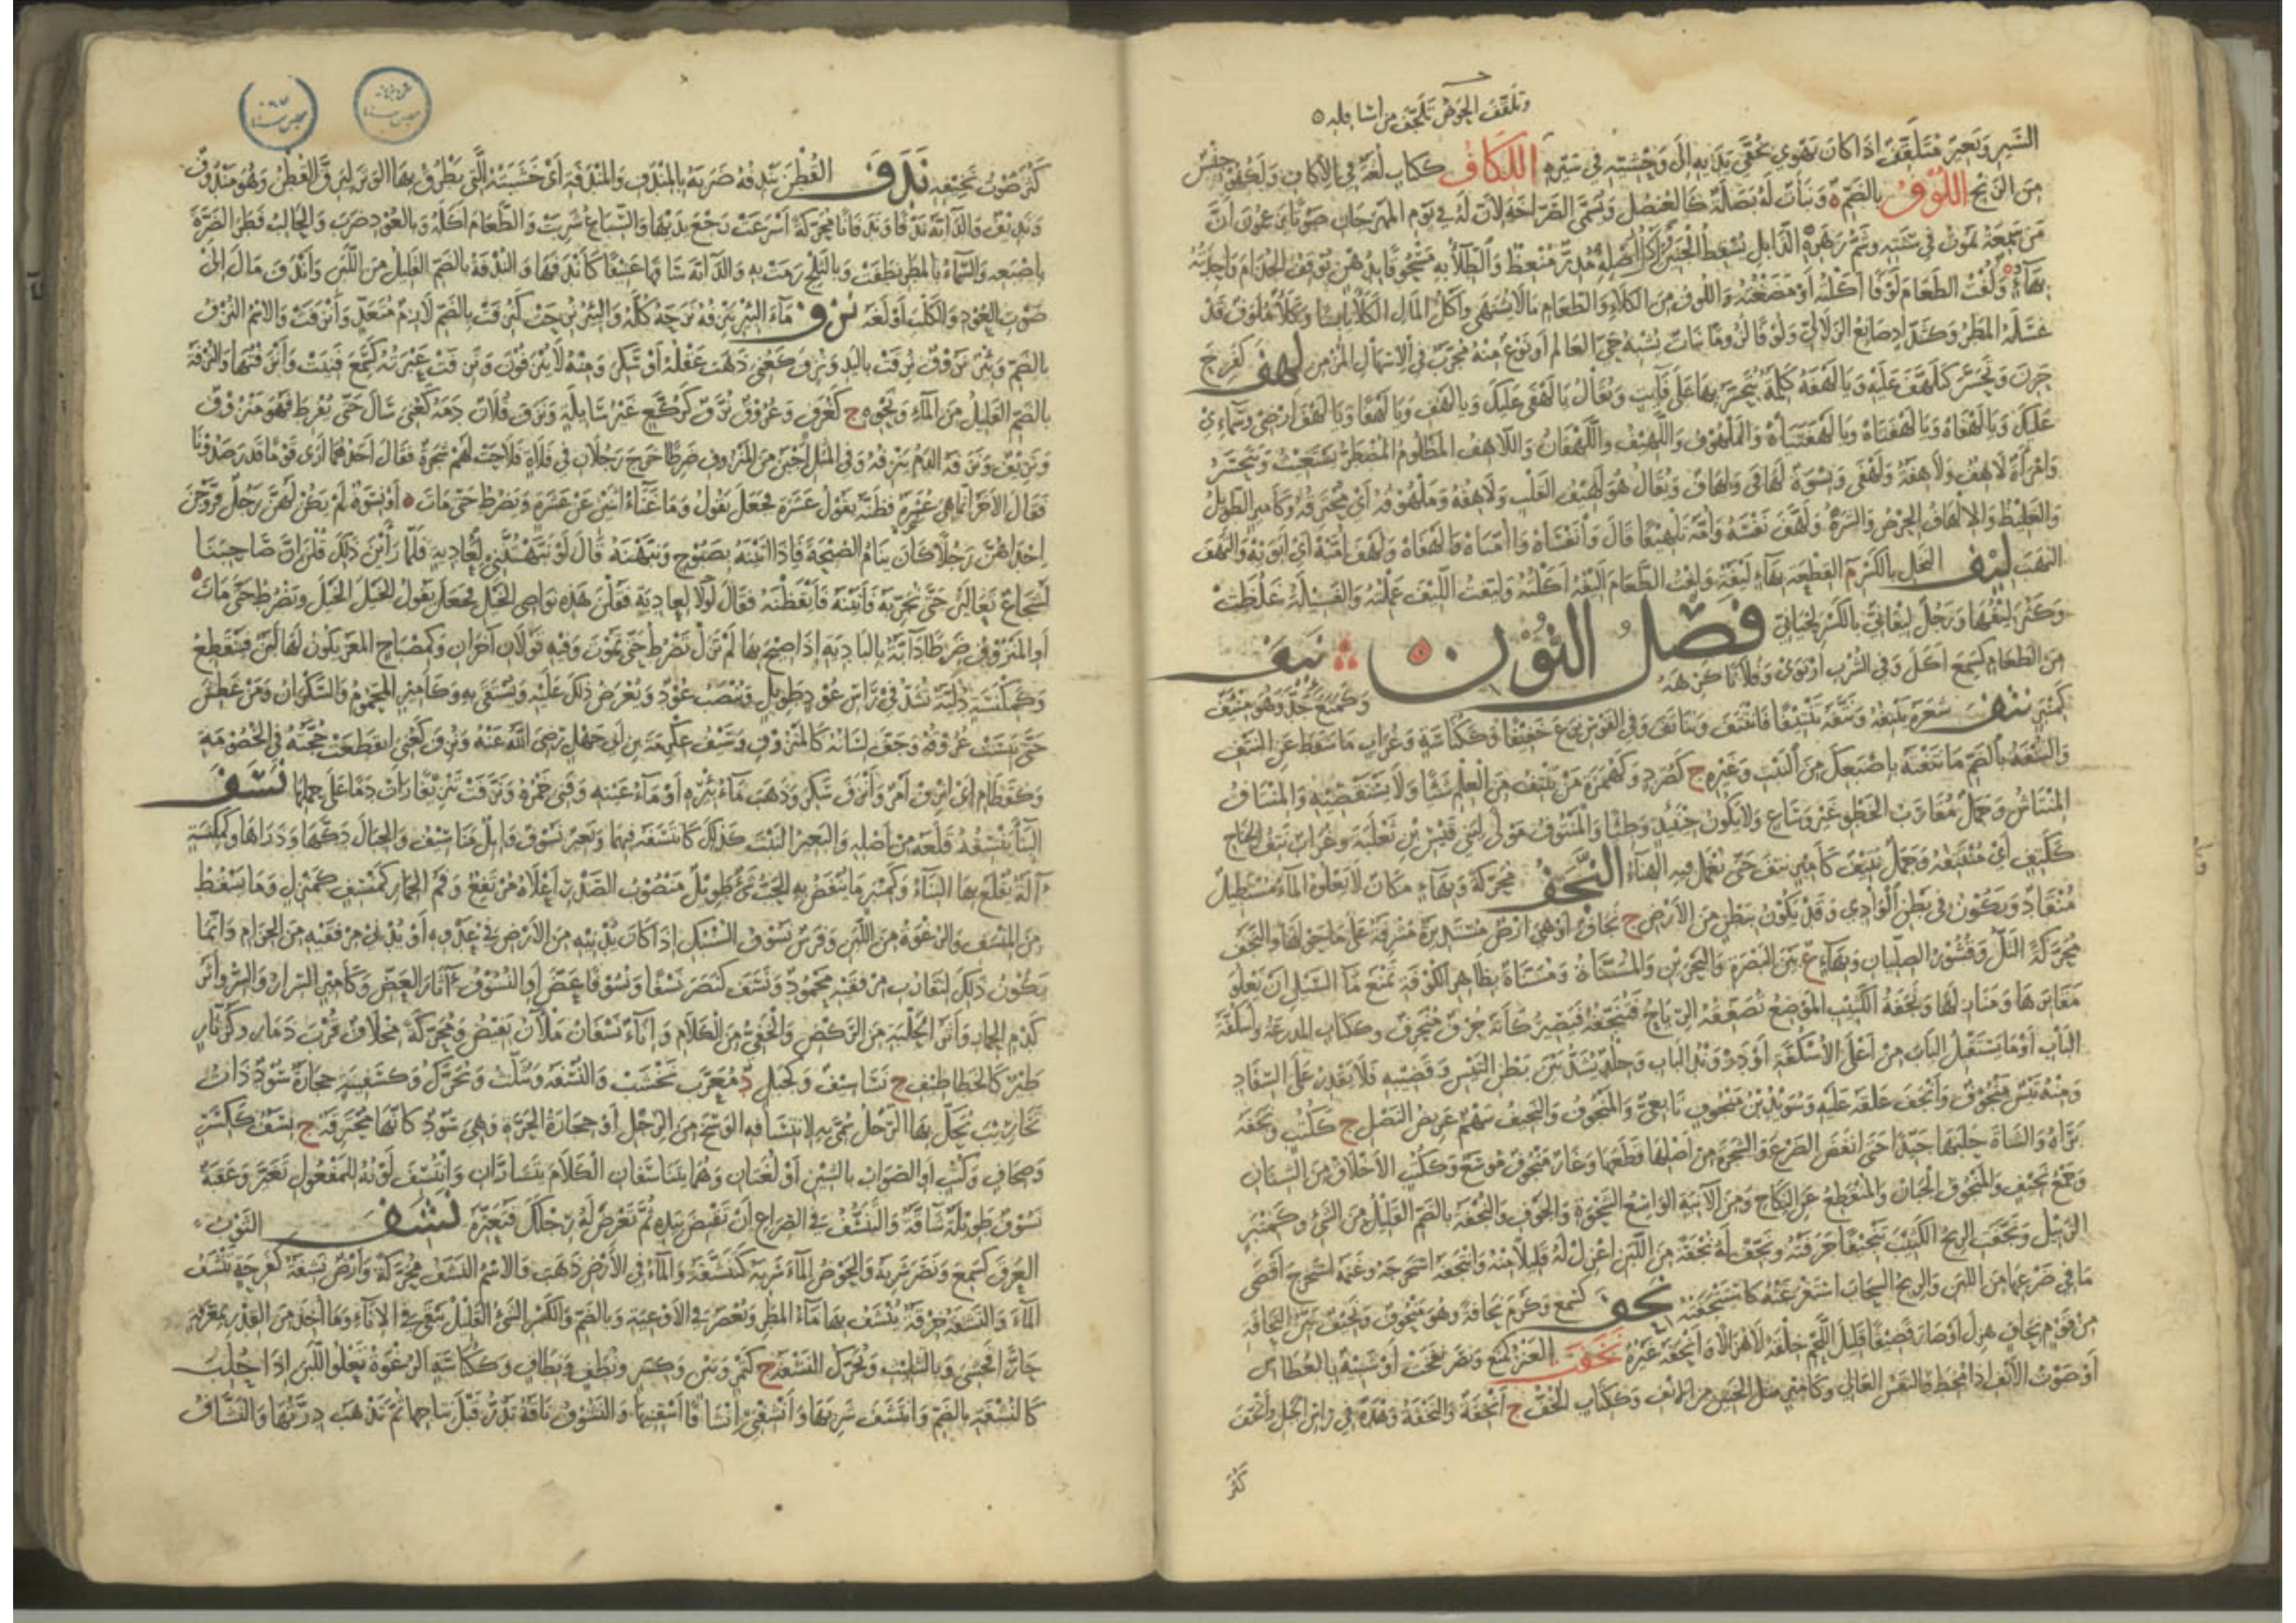 وتلقف الحوض تلجف من أسافله
السير وبعير متلقف إذا كان يهوي بخفي يديه إلى وحشيه في سيره اللكاف ككتاب لغة في الإكاف
من الزنج اللوف بالضم ونبات له بصلة كالعنصل وتسمى الصراخة لأن له في يوم المهرجان صوتا يزعمون أن
من سمعه يموت في سنته وشم زهره الذابل يسقط الجنين وأكل أصله مدر منعظ والطلاء به مسحوقا بدهن يوقف الجذام
بهاء ولفت الطعام لوفا أكلته أو مضغته واللوف من الكلأ والطعام ما لا يشتهى وأكل المال الكلأ يابسا وكلأ ملوف قد
غسله المطر وكشداد صانع الزلالي ولوفا نبات يشبه حي العالم أو نوع منه مجرب في الإسهال المزمن لهف كفرح
حزن وتحسر كتلهف عليه ويا لهفة كلمة يتحسر بها على فائت ويقال يا لهفي عليك ويا لهف ويا لهفا ويا لهف أرضي وسمائي
عليك ويا لهفاه ويا لهفتاه ويا لهفتياه والملهوف واللهيف واللهفان واللاهف المظلوم المضطر يستغيث ويتحسر
وامرأة لاهف ولاهفة ولهفى ونسوة لهافى ولهاف ويقال هو لهيف القلب ولاهفه وملهوفه أي محترقه وكأمير الطويل
والغليظ والإلهاف الحرص والشره ولهف نفسه وأمه تلهيفا قال وانفساه وا أمياه وا لهفاه ولهف أميه أي أبويه والتهف
التهب ليف النخل بالكسر م القطعة بهاء ليفة وليفت الطعام أليفه أكلته وليفت الليف عملته والفسيلة غلظت
وكثر ليفها ورجل ليفاني بالكسر لحياني فصل النون نئف
من الطعام كسمع أكل وفي الشرب ارتوى وفلانا كرهه وكمنع جد وهو منئف
كمنبر نتف شعره ينتفه ونتفه تنتيفا فانتتف وتناتف وفي القوس نزع خفيفا وككناسة وغراب ما سقط عن النتف
والنتفة بالضم ما تنتفه بإصبعك من النبت وغيره ج كصرد وكهمزة من ينتف من العلم شيئا ولا يستقصيه والمنتاف
المنتاش وجمل مقارب الخطو غير وساع ولا يكون حينئذ وطيا والمنتوف مولى لبني قيس بن ثعلبة وغراب نتف الجناح
ككتف أي منتتفه وجمل نتيف كأمير نتف حتى يعمل فيه الهناء النجف محركة وبهاء مكان لا يعلوه الماء مستطيل
منقاد ويكون في بطن الوادي وقد يكون ببطن من الأرض ج نجاف أو هي أرض مستديرة مشرفة على ما حولها والنجف
محركة التل وقشور الصليان وبهاء ع بين البصرة والبحرين والمسناة ومسناة بظاهر الكوفة تمنع ماء السيل أن يعلو
مقابرها ومنازلها ونجفة الكثيب الموضع تصفقه الرياح فتنجفه فيصير كأنه جرف منجرف وككتاب المدرعة وأسكفة
الباب أو ما يستقبل الباب من أعلى الأسكفة أو دروند الباب وجلد يشد بين بطن التيس وقضيبه فلا يقدر على السفاد
ومنه تيس منجوف وأنجف علقه عليه وسويد بن منجوف تابعي والمنجوف والنجيف سهم عريض النصل ج ككتب ونجفه
براه والشاة حلبها جيدا حتى أنفض الضرع والشجرة من أصلها قطعها وغار منجوف موسع وككتب الأخلاق من الشنان
وجمع نجيف والمنجوف الجبان والمنقطع عن النكاح ومن الآنية الواسع الشحوة والجوف والنجفة بالضم القليل من الشيء وكمنبر
الزبيل ونجفت الريح الكثيب تنجيفا جرفته ونجف له نجفة من اللبن اعزل له قليلا منه وانتجفه استخرجه وغنمه استخرج أقصى
ما في ضرعها من اللبن والريح السحاب استفرغته كاستنجفته نحف كسمع وكرم نحافة وهو منحوف ونحيف بين النحافة
من قوم نحاف هزل أو صار قضيفا قليل اللحم خلقة لا هزالا وأنحفه غيره نخفت العنز كمنع ونصر نفخت أو شبيه بالعطاس
أو صوت الأنف إذا مخط والنفس العالي وكأمير مثل الخنين من الأنف وككتاب الخف ج أنخفة والنخفة وهدة في رأس الجبل وأنخف
كثر
كثر صوت نخيفه ندف القطن يندفه ضربه بالمندف والمندفة أي خشبته التي يطرق بها الوتر ليرق القطن وهو مندوف
ونديف والدابة ندفا وندفانا محركة أسرعت رجع يديها والسباع شربت والطعام أكله وبالعود ضرب والحالب فطر الضرة
بإصبعه والسماء بالمطر نطفت وبالثلج رمت به والدابة ساقها عنيفا كأندفها والندفة بالضم القليل من اللبن وأندف مال إلى
صوت العود والكلب أولغه نزف ماء البئر ينزفه نزحه كله والبئر نزحت كنزفت بالضم لازم متعد وأنزفت والاسم النزف
بالضم وبئر نزوف نزفت باليد ونزف كعني ذهب عقله أو سكر ومنه لا ينزفون ونزفت عبرته كسمع فنيت وأنزفتها والنزفة
بالضم القليل من الماء ونحوه ج كغرف وعروق نزف كركع غير سائلة ونزف فلان دمه كعني سال حتى يفرط فهو منزوف
ونزيف ونزفه الدم ينزفه وفي المثل أجبن من المنزوف ضرطا خرج رجلان في فلاة فلاحت لهم شجرة فقال أحدهما أرى قوما قد رصدونا
فقال الآخر إنما هي عشرة فظنه يقول عشرة فجعل يقول وما غناء اثنين عن عشرة ويضرط حتى مات أو نسوة لم يكن لهن رجل فزوجن
إحداهن رجلا كان ينام الصبحة فإذا أتينه بصبوح ونبهنه قال لو نبهتنني لعادية فلما رأين ذلك قلن إن صاحبنا
لشجاع تعالين حتى نجربه فأتينه فأيقظنه فقال لولا لعادية فقلن هذه نواصي الخيل فجعل يقول الخيل الخيل ويضرط حتى مات
أو المنزوف ضرطا دابة بالبادية إذا صيح بها لم تزل تضرط حتى تموت وفيه قولان آخران وكمصباح المعز يكون لها لبن فينقطع
وكمكنسة دلية تشد في رأس عود طويل وينصب عود ويعرض ذلك عليه ويستقى به وكأمير المحموم والسكران ومن عطش
حتى يبست عروقه وجف لسانه كالمنزوف وسيف عكرمة بن أبي جهل رضي الله عنه ونزف كعني انقطعت حجته في الخصومة
وكقطام أي انزف أمر وأنزف سكر وذهب ماء بئره أو ماء عينه وفني خمره ونزفت تنزيفا رأت دما على حملها نسف
البناء ينسفه قلعه من أصله والبعير النبت كذلك كانتسفه فيهما وبعير نسوف وإبل مناسيف والجبال دكها وذراها وكمكنسة
آلة يقلع بها البناء وكمنبر ما ينفض به الحب شيء طويل منصوب الصدر أعلاه مرتفع وفم الحمار كمنسف كمنزل وما يسقط
من المنسف والرغوة من اللبن وفرس نسوف السنبك إذا كان يدنيه من الأرض في عدوه أو يدني مرفقيه من الحزام وإنما
يكون ذلك لتقارب مرفقيه محمود ونسف كنصر نسفا ونسوفا عض أو النسوف آثار العض وكأمير السرار والسر وأثر
كدم الحمار وأثر الحلبة من الركض والخفي من الكلام وإناء نسفان ملآن يفيض ومحركة مخلاف قرب ذمار وكزنار
طير كالخطاطيف ج نساسيف وكجبل د معرب نخشب والنسفة ويثلث ويحرك وكسفينة حجارة سود ذات
نخاريب تحك بها الرجل سمي به لانتسافه الوسخ من الرجل أو حجارة الحرة وهي سود كأنها محترقة ج نسف ككسر
وصحاف وكتب أو الصواب بالشين أو لغتان وهما يتناسفان الكلام يتساران وانتسف لونه للمفعول تغير وعقبة
نسوف طويلة شاقة والتنسف في الصراع أن تقبض بيده ثم تعرض له رجلك فتعثره نشف الثوب
العرق كسمع ونصر شربه والحوض الماء شربه كتنشفه والماء في الأرض ذهب والاسم النشف محركة وأرض نشفة كفرحة تنشف
الماء والنشفة خرقة ينشف بها ماء المطر ويعصر في الأوعية وبالضم والكسر الشيء القليل يبقى في الإناء وما أخذ من القدر بمغرفة
حارا فحسي وبالتثليث ويحرك النسفة ج كتمر وتبن وكسر ونطف ونطاف وككناسة الرغوة تعلو اللبن إذا حلب
كالنشفة بالضم وانتشف شربها وأنشفني إنشافا أسقنيها والنشوف ناقة تدر قبل نتاجها ثم تذهب درتها والنشاف